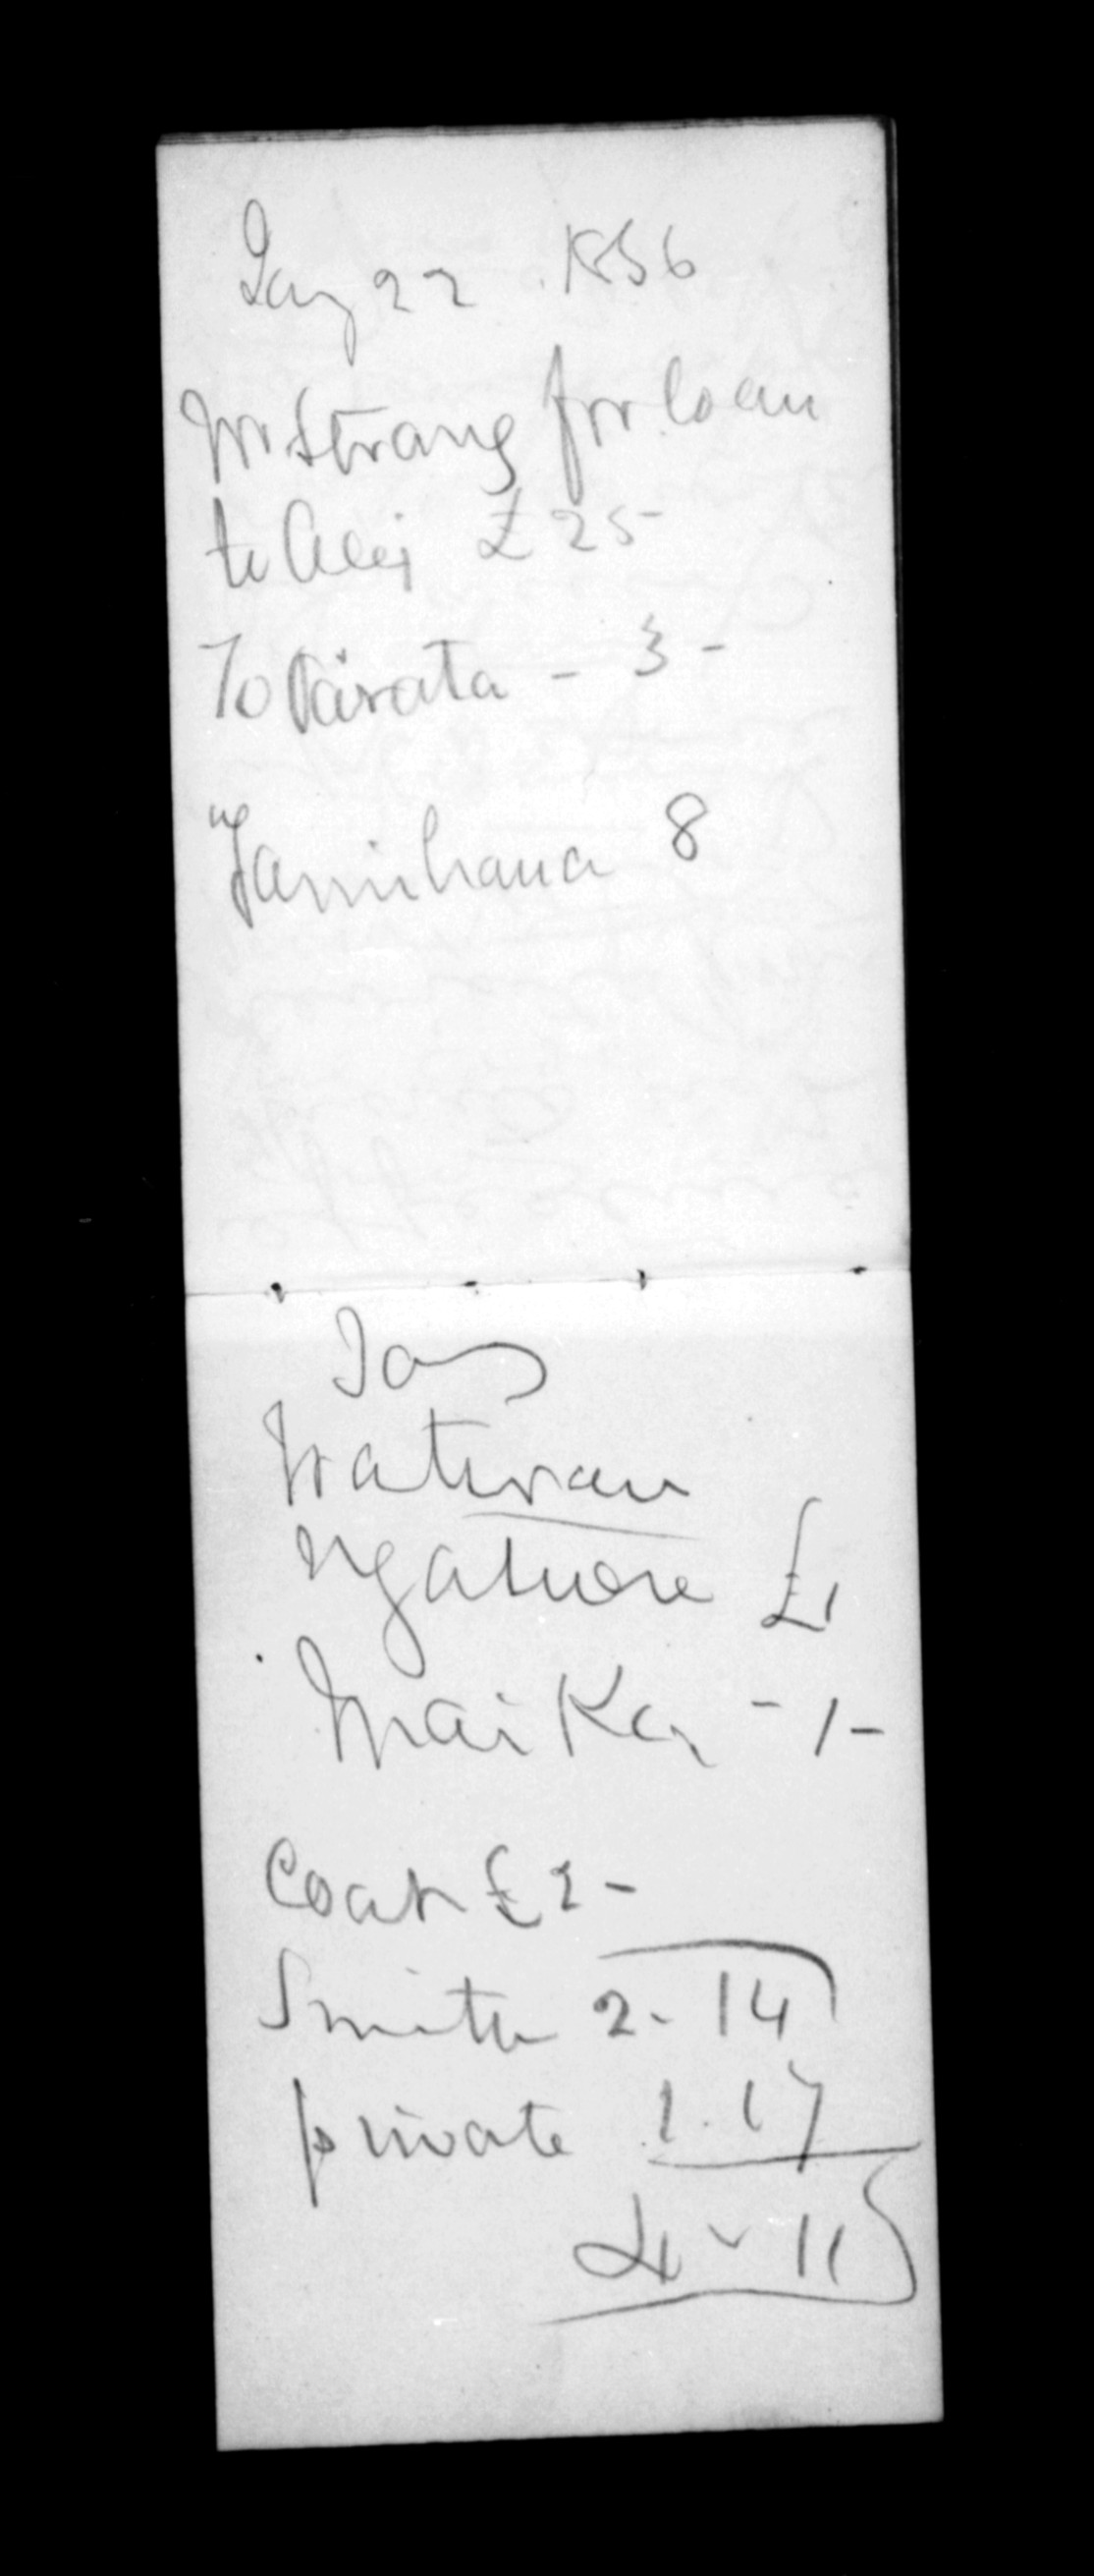 Jany 22 1856
Mr Strang for loan
to Alej £25
To Parata - 3 -
" Tamihana 8
Jas
Watson
Ngatuere £1
Mai Ka - 1 -
Coat £2 -
Smith 2. 14
private 1. 17
4 - 11